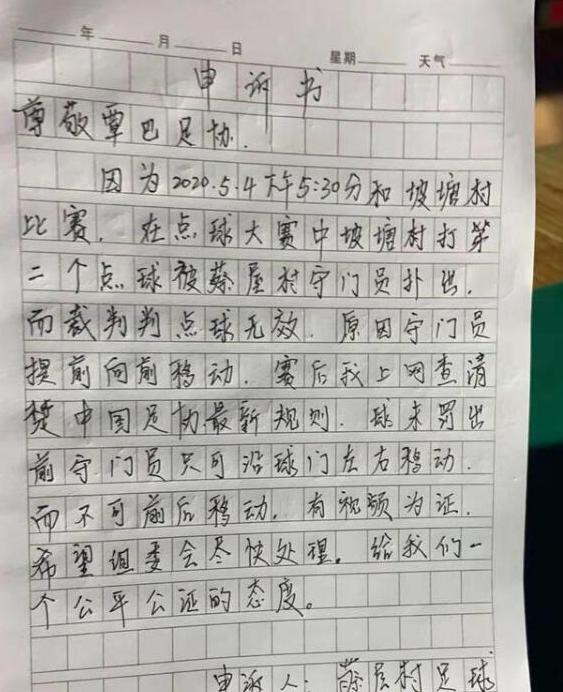 年 月 日 星期 天气
申诉书
尊敬覃巴足协.
因为2020.5.4下午5:30分和坡塘村
比赛. 在点球大赛中坡塘村打第
二个点球被蔡屋村守门员扑出.
而裁判判点球无效. 原因守门员
提前向前移动. 赛后我上网查清
楚中国足协最新规则. 球未罚出
前守门员只可沿球门左右移动.
而不可前后移动. 有视频为证.
希望组委会尽快处理。给我们一
个公平公证的态度。
申诉人: 蔡屋村足球